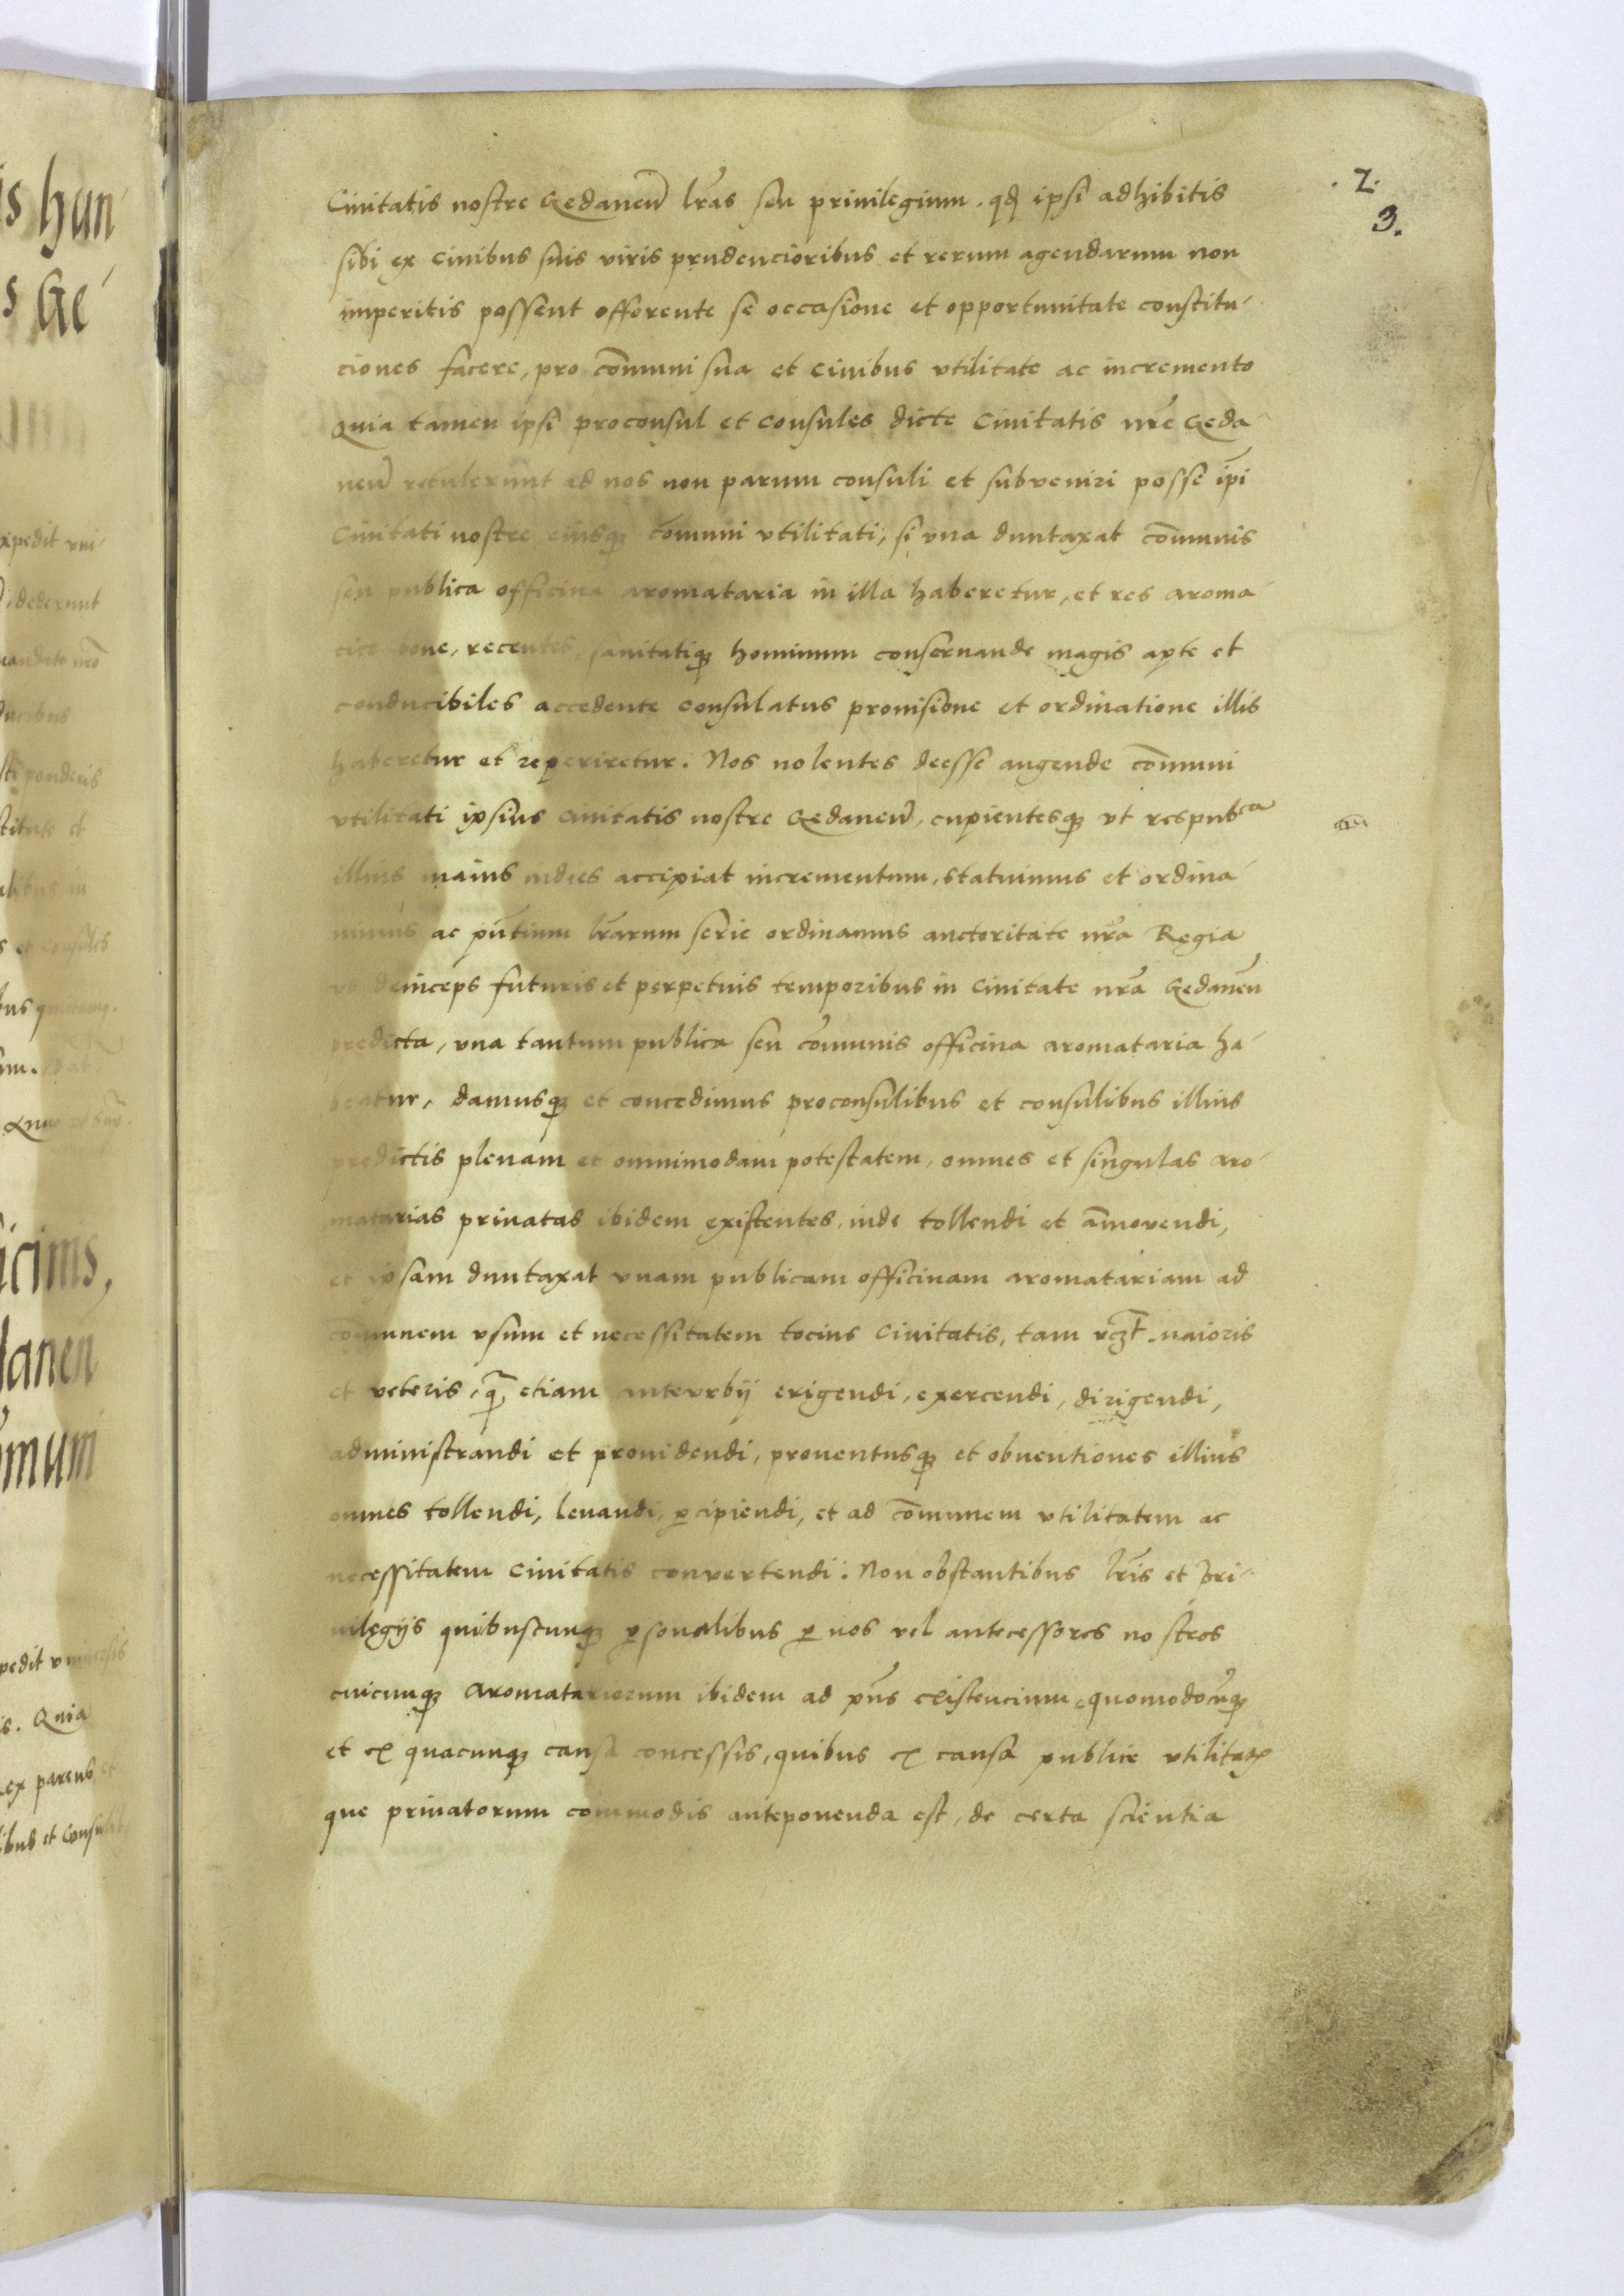 .2.
3.
Ciuitatis nostre Gedanen̄ lr̄as seu priuilegium. qđ ipsi adhibitis
sibi ex Ciuibus suis viris prudencioribus et rerum agendarum non
imperitis possent offerente se occasione et opportunitate constitu-
ciones facere, pro com̄uni sua et Ciuibus vtilitate ac incremento
Quia tamen ipsi proconsul et Consules dicte Ciuitatis nr̄e Geda-
nen̄ retulerunt ad nos non parum consuli et subveniri posse ip̄i
Ciuitati nostre eiusq; com̄uni vtilitati, si vna duntaxat com̄unis
seu publica officina aromataria in illa haberetur, et res aroma-
tice bone, recentes, sanitatiq; hominum conseruande magis apte et
conducibiles accedente Consulatus prouisione et ordinatione illis
haberetur et reperiretur. Nos nolentes deesse augende com̄uni
vtilitati ipsius Ciuitatis nostre Gedanen̄, cupientesq; vt respub^ca
illius maius indies accipiat incrementum, statuimus et ordina-
uimus ac pn̄tium lr̄arum serie ordinamus auctoritate nr̄a Regia
vt deinceps futuris et perpetuis temporibus in Ciuitate nr̄a Gedanen̄
predicta, vna tantum publica seu com̄unis officina aromataria ha-
beatur, damusq; et concedimus proconsulibus et consulibus illius
predictis plenam et omnimodam potestatem, omnes et singulas aro-
matarias priuatas ibidem existentes, inde tollendi et am̄ovendi,
et ipsam duntaxat vnam publicam officinam aromatariam ad
com̄unem vsum et necessitatem tocius Ciuitatis, tam vcz̄t maioris
et veteris, q̄ etiam antevrbij erigendi, exercendi, dirigendi,
administrandi et prouidendi, prouentusq; et obuentiones illius
omnes tollendi, leuandi, ꝑcipiendi, et ad com̄unem vtilitatem ac
necessitatem Ciuitatis convertendi. Non obstantibus lr̄is et pri-
uilegijs quibuscunq; ꝑsonalibus ꝑ nos vel antecessores nostros
cuicunq; Aromatariorum ibidem ad pn̄s existencium, quomodocūq;
et ex quacunq; causa concessis, quibus ex causa publice vtilitatꝭ
que priuatorum commodis anteponenda est, de certa scientia